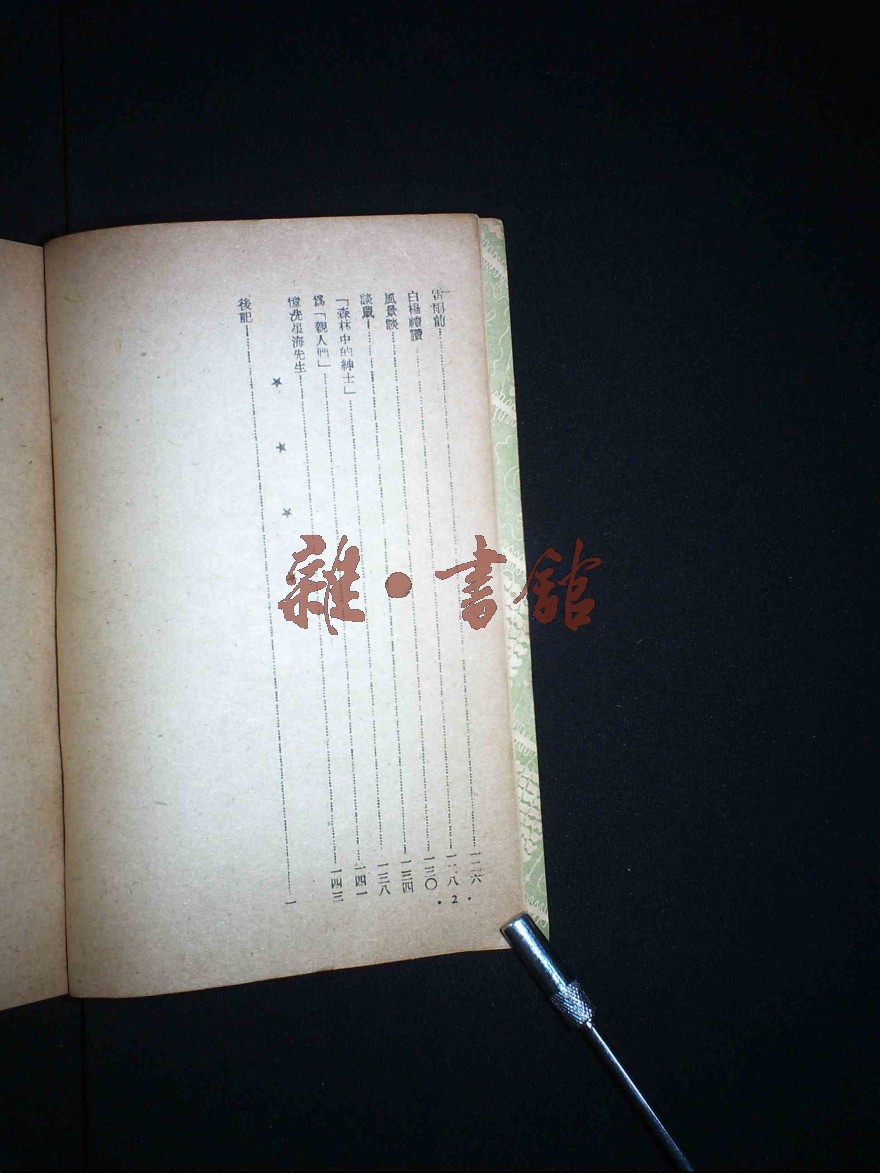 雷雨前……一二六
白楊禮讚……一二八
風景談……一三〇
談鼠……一三四
「森林中的紳士」……一三八
爲「親人們」……一四一
憶冼星海先生……一四三
★ ★ ★
後記……一
· 2 ·
雜·書館